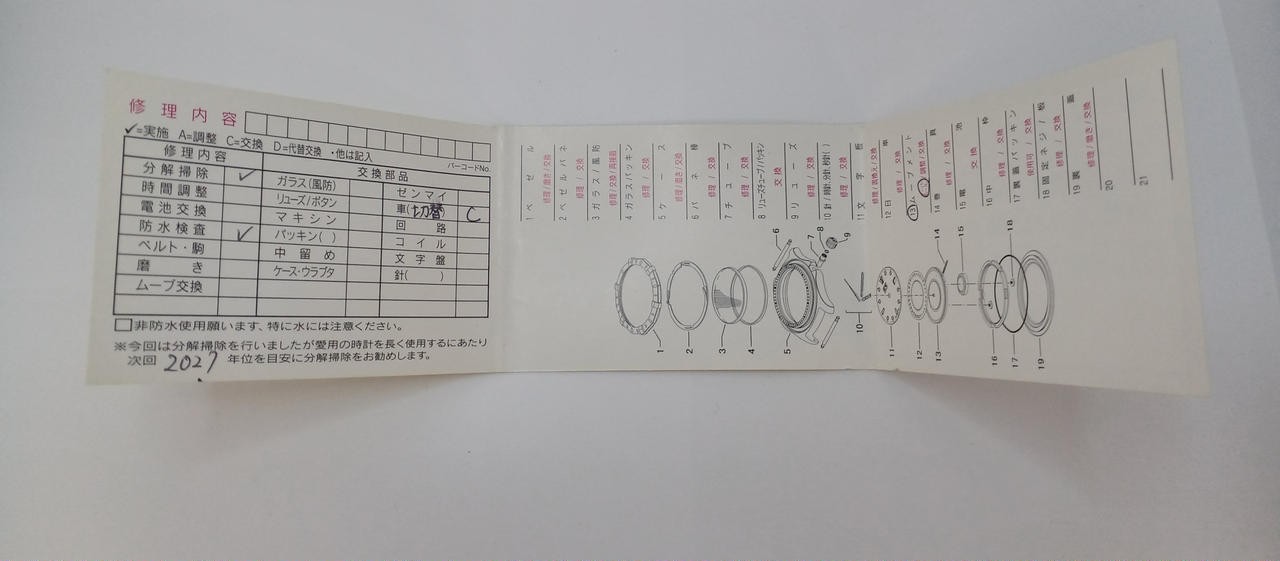 修理内容
✓=実施 A=調整 C=交換 D=代替交換 ・他は記入
バーコードNo.
修理内容 交換部品
分解掃除 ✓ ガラス(風防) ゼンマイ
時間調整 リューズ/ボタン 車(切替) C
電池交換 マキシン 回路
防水検査 ✓ パッキン( ) コイル
ベルト・駒 中留め 文字盤
磨き ケース・ウラブタ 針( )
ムーブ交換
□非防水使用願います、特に水には注意ください。
※今回は分解掃除を行いましたが愛用の時計を長く使用するにあたり
次回 2027 年位を目安に分解掃除をお勧めします。
1 ベゼル
修理/磨き/交換
2 ベゼルバネ
修理/交換
3 ガラス/風防
修理/交換/再接着
4 ガラスパッキン
修理/交換
5 ケース
修理/磨き/交換
6 バネ棒
修理/交換
7 チューブ
修理/交換
8 リューズチューブ/パッキン
交換
9 リューズ
修理/交換
10 針/時針,分針,秒針( )
修理/交換
11 文字板
12 日車
修理/交換
13 ムーブメント
調整/交換
14 巻真
修理/交換
15 電池
交換
16 中枠
修理/交換
17 裏蓋パッキン
使用可/交換
18 固定ネジ/板
修理/交換
19 裏蓋
修理/磨き/交換
20
21
1
2
3
4
5
6
7
8
9
10
11
12
13
14
15
16
17
18
19